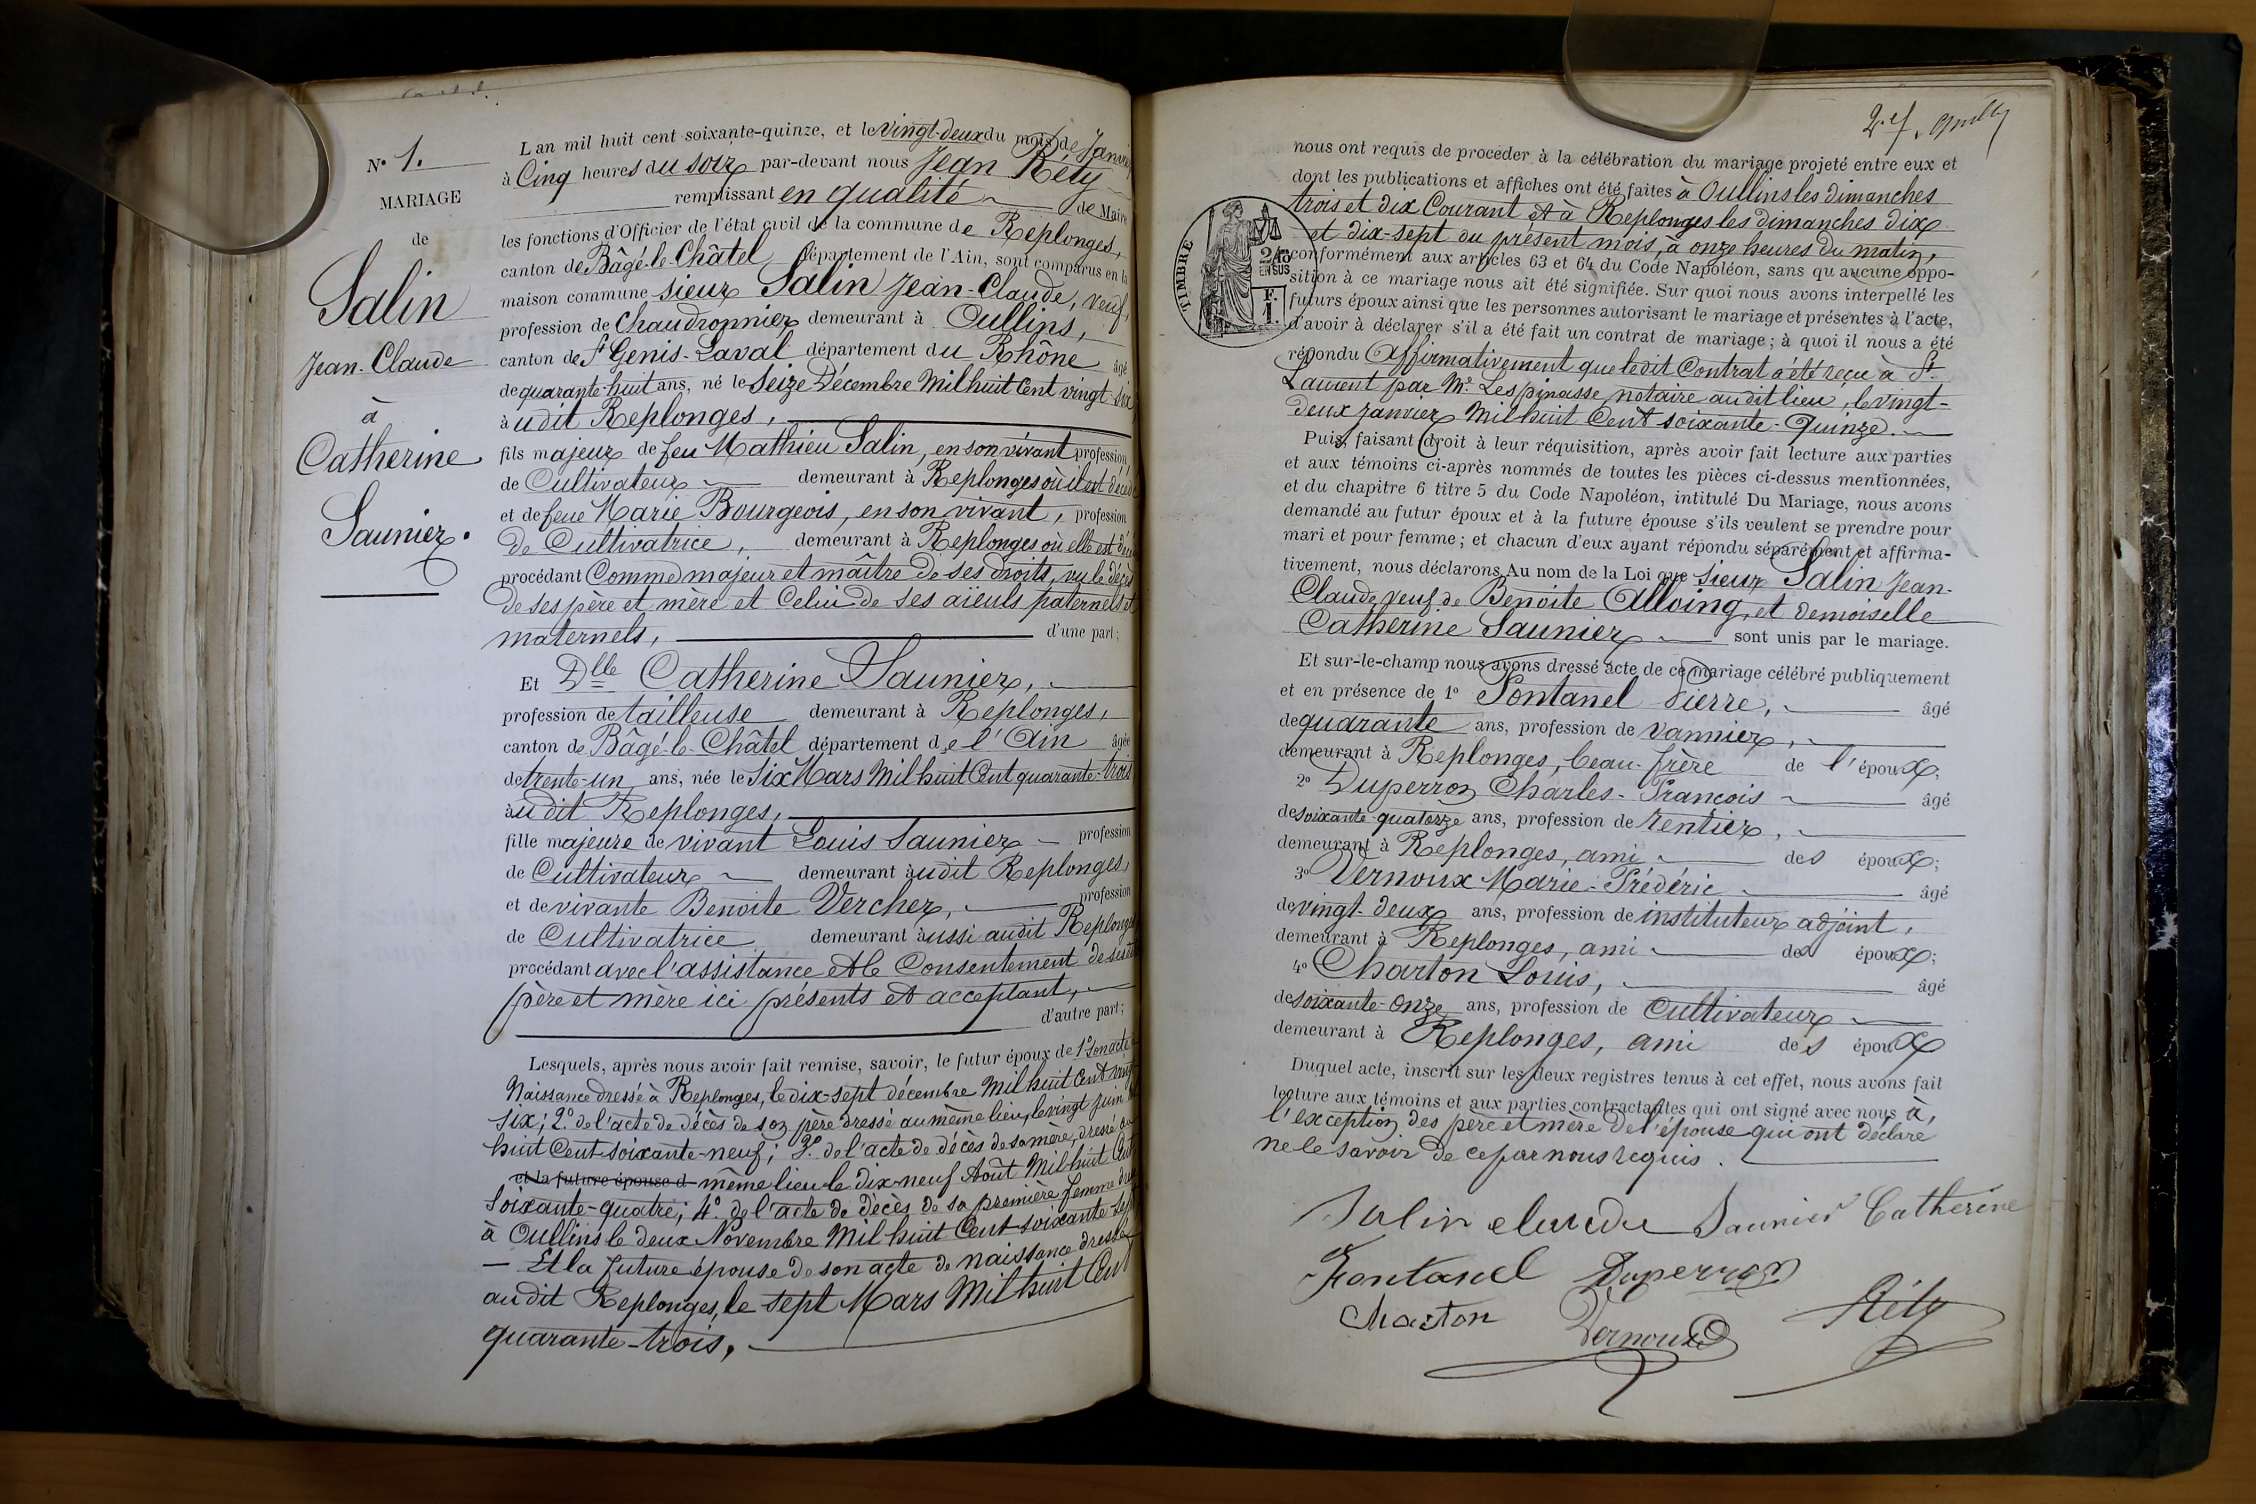 N° 1.
MARIAGE
de
Salin
Jean-Claude
à
Catherine
Saunier.
L'an mil huit cent soixante-quinze, et le vingt-deux du mois de Janvier
à Cinq heures du soir par-devant nous Jean Réty
remplissant en qualité de Maire
les fonctions d'Officier de l'état civil de la commune de Replonges,
canton de Bâgé-le-Châtel département de l'Ain, sont comparus en la
maison commune sieur Salin Jean-Claude, veuf,
profession de Chaudronnier demeurant à Oullins,
canton de St Genis-Laval département du Rhône âgé
de quarante-huit ans, né le Seize Décembre Mil huit Cent vingt-six
à udit Replonges,
fils majeur de feu Mathieu Salin, en son vivant profession
de Cultivateur demeurant à Replonges où il est décédé
et de feue Marie Bourgeois, en son vivant, profession
de Cultivatrice, demeurant à Replonges où elle est
procédant Comme majeur et maître de ses droits, vu le décès
de ses père et mère et Celui de ses aïeuls paternels et
maternels, d'une part;
Et Dlle Catherine Saunier,
profession de tailleuse demeurant à Replonges,
canton de Bâgé-le-Châtel département de l'Ain âgée
de trente-un ans, née le Six Mars Mil huit Cent quarante-trois
àudit Replonges,
fille majeure de vivant Louis Saunier profession
de Cultivateur demeurant àudit Replonges,
et de vivante Benoite Vercher, profession
de Cultivatrice demeurant àussi audit Replonges
procédant avec l'assistance et le Consentement de ses
père et mère ici présents et acceptant,
d'autre part;
Lesquels, après nous avoir fait remise, savoir, le futur époux de 1° son acte
Naissance dressé à Replonges, le dix-sept décembre Mil huit Cent vingt
six; 2° de l'acte de décès de son père dressé au même lieu, le vingt juin
huit Cent soixante-neuf; 3° de l'acte de décès de sa mère, dressé au
et la future épouse d même lieu le dix-neuf Août Mil huit Cent
Soixante-quatre; 4° de l'acte de décès de sa première femme
à Oullins le deux Novembre Mil huit Cent soixante-sept
— Et la future épouse de son acte de naissance dressé
audit Replonges, le sept Mars Mil huit Cent
quarante-trois,
TIMBRE
2/10
EN SUS
F.
1.
nous ont requis de procéder à la célébration du mariage projeté entre eux et
dont les publications et affiches ont été faites à Oullins les dimanches
trois et dix Courant et à Replonges les dimanches dix
et dix-sept du présent mois, à onze heures du matin,
conformément aux articles 63 et 64 du Code Napoléon, sans qu'aucune oppo-
sition à ce mariage nous ait été signifiée. Sur quoi nous avons interpellé les
futurs époux ainsi que les personnes autorisant le mariage et présentes à l'acte,
d'avoir à déclarer s'il a été fait un contrat de mariage; à quoi il nous a été
répondu Affirmativement que ledit Contrat a été reçu à St
Laurent par Me Lespinasse, notaire audit lieu, le vingt-
deux janvier Mil huit Cent soixante-Quinze.
Puis, faisant droit à leur réquisition, après avoir fait lecture aux parties
et aux témoins ci-après nommés de toutes les pièces ci-dessus mentionnées,
et du chapitre 6 titre 5 du Code Napoléon, intitulé Du Mariage, nous avons
demandé au futur époux et à la future épouse s'ils veulent se prendre pour
mari et pour femme; et chacun d'eux ayant répondu séparément et affirma-
tivement, nous déclarons Au nom de la Loi que sieur Salin Jean-
Claude veuf de Benoite Alloing, et demoiselle
Catherine Saunier sont unis par le mariage.
Et sur-le-champ nous avons dressé acte de ce mariage célébré publiquement
et en présence de 1° Fontanel Pierre, âgé
de quarante ans, profession de vannier,
demeurant à Replonges, beau-frère de l'époux;
2° Duperron Charles-François âgé
de soixante-quatorze ans, profession de rentier,
demeurant à Replonges, ami des époux;
3° Vernoux Marie-Frédéric âgé
de vingt-deux ans, profession de instituteur adjoint,
demeurant à Replonges, ami des époux;
4° Charton Louis, âgé
de soixante-onze ans, profession de Cultivateur
demeurant à Replonges, ami des époux
Duquel acte, inscrit sur les deux registres tenus à cet effet, nous avons fait
lecture aux témoins et aux parties contractantes qui ont signé avec nous à,
l'exception des père et mère de l'épouse qui ont déclaré
ne le savoir de ce par nous requis.
Salin claude Saunier Catherine
Fontanel Duperron
Charton Vernoux Réty